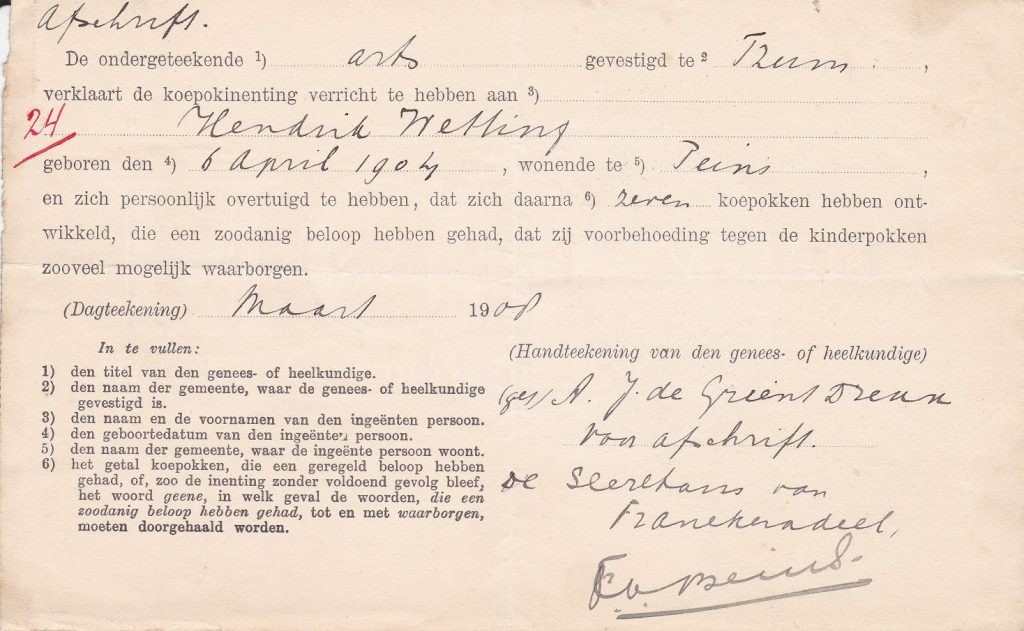 Afschrift.
De ondergeteekende 1) arts gevestigd te 2 Tzum,
verklaart de koepokinenting verricht te hebben aan 3)
24 Hendrik Wetting
geboren den 4) 6 April 1904, wonende te 5) Peins,
en zich persoonlijk overtuigd te hebben, dat zich daarna 6) zeven koepokken hebben ont-
wikkeld, die een zoodanig beloop hebben gehad, dat zij voorbehoeding tegen de kinderpokken
zooveel mogelijk waarborgen.
(Dagteekening) Maart 1908
In te vullen:
1) den titel van den genees- of heelkundige.
2) den naam der gemeente, waar de genees- of heelkundige
gevestigd is.
3) den naam en de voornamen van den ingeënten persoon.
4) den geboortedatum van den ingeënten persoon.
5) den naam der gemeente, waar de ingeënte persoon woont.
6) het getal koepokken, die een geregeld beloop hebben
gehad, of, zoo de inenting zonder voldoend gevolg bleef,
het woord geene, in welk geval de woorden, die een
zoodanig beloop hebben gehad, tot en met waarborgen,
moeten doorgehaald worden.
(Handteekening van den genees- of heelkundige)
(get) A. J. de Grient Dreux
voor afschrift.
De Secretaris van
Franekeradeel,